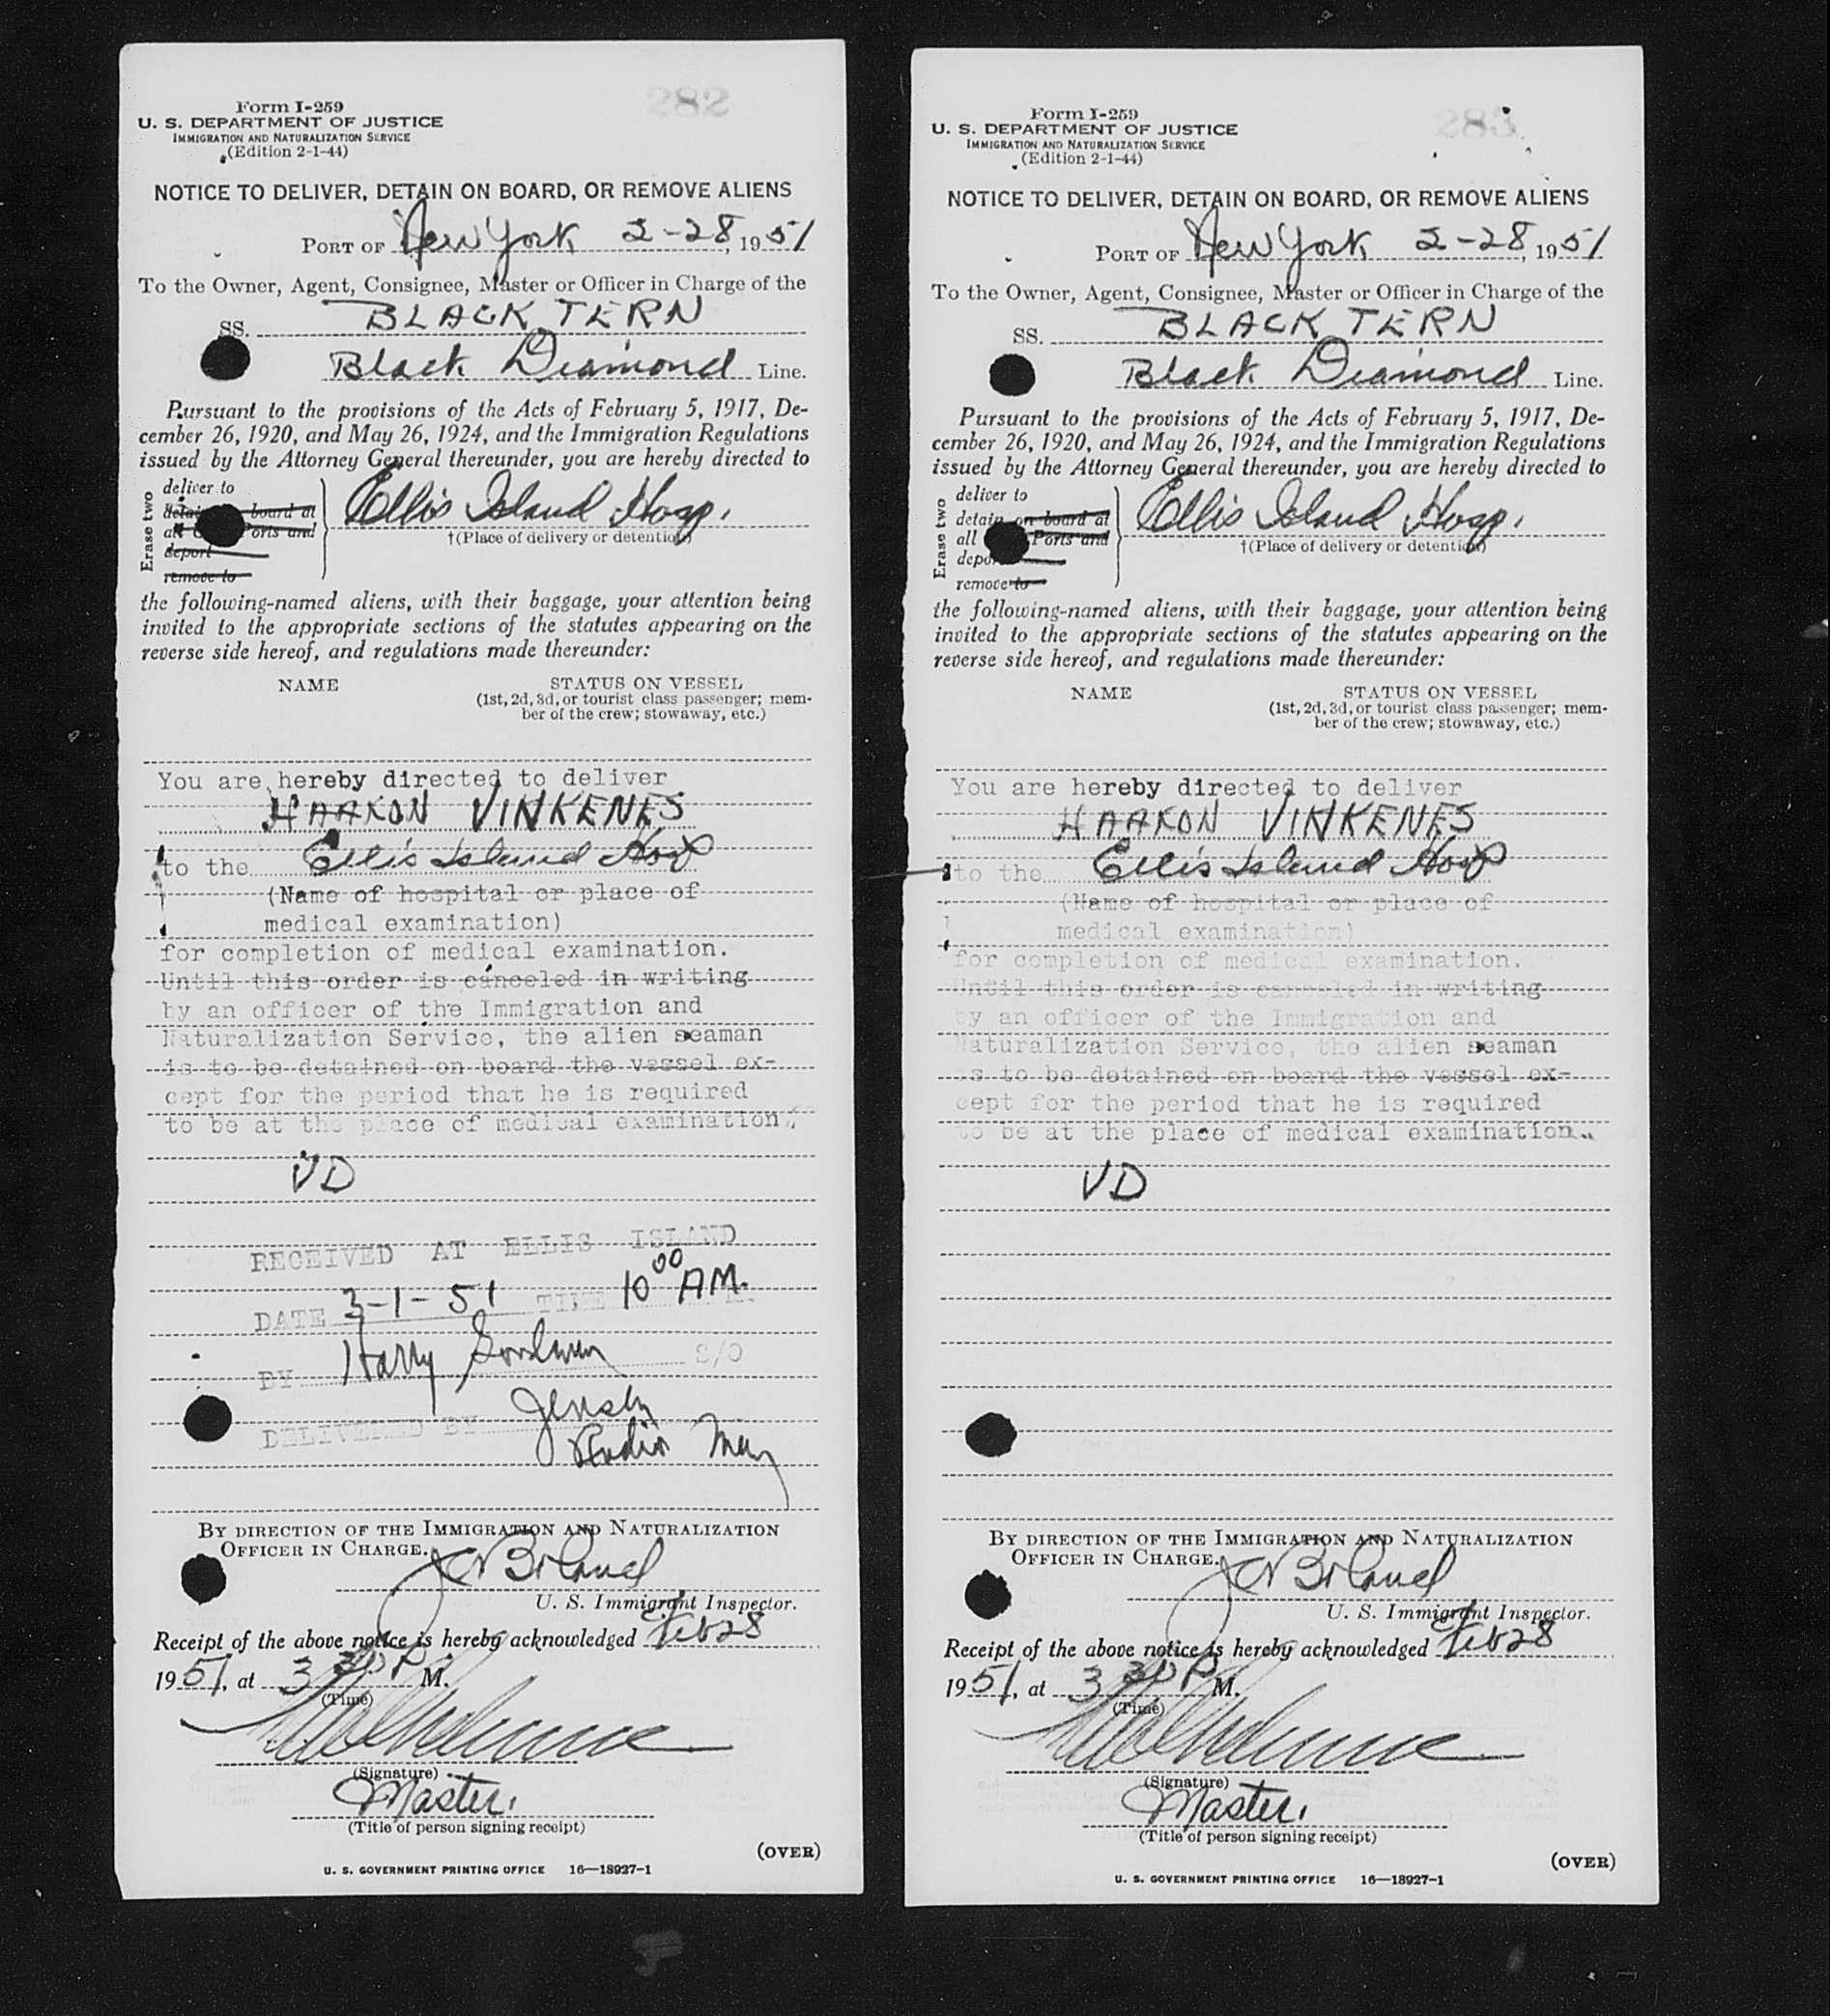 282
Form I-259
U. S. DEPARTMENT OF JUSTICE
IMMIGRATION AND NATURALIZATION SERVICE
(Edition 2-1-44)
NOTICE TO DELIVER, DETAIN ON BOARD, OR REMOVE ALIENS
PORT OF New York 2-28, 1951
To the Owner, Agent, Consignee, Master or Officer in Charge of the
SS. BLACK TERN
Black Diamond Line.
Pursuant to the provisions of the Acts of February 5, 1917, De-
cember 26, 1920, and May 26, 1924, and the Immigration Regulations
issued by the Attorney General thereunder, you are hereby directed to
Erase two
deliver to
detain on board at
all Ports and
deport
remove to
Ellis Island Hosp.
†(Place of delivery or detention)
the following-named aliens, with their baggage, your attention being
invited to the appropriate sections of the statutes appearing on the
reverse side hereof, and regulations made thereunder:
NAME STATUS ON VESSEL
(1st, 2d, 3d, or tourist class passenger; mem-
ber of the crew; stowaway, etc.)
You are hereby directed to deliver
HAAKON VINKENES
to the Ellis Island Hosp
(Name of hospital or place of
medical examination)
for completion of medical examination.
Until this order is canceled in writing
by an officer of the Immigration and
Naturalization Service, the alien seaman
is to be detained on board the vessel ex-
cept for the period that he is required
to be at the place of medical examination.
VD
RECEIVED AT ELLIS ISLAND
DATE 3-1-51 TIME 10 00 AM.
BY Harry Goodwin S/O
DELIVERED BY
Radio Man
BY DIRECTION OF THE IMMIGRATION AND NATURALIZATION
OFFICER IN CHARGE.
U. S. Immigrant Inspector.
Receipt of the above notice is hereby acknowledged Feb 28
1951, at 3 30 P M.
(Time)
(Signature)
Master.
(Title of person signing receipt)
(OVER)
U. S. GOVERNMENT PRINTING OFFICE 16—18927-1
283
Form I-259
U. S. DEPARTMENT OF JUSTICE
IMMIGRATION AND NATURALIZATION SERVICE
(Edition 2-1-44)
NOTICE TO DELIVER, DETAIN ON BOARD, OR REMOVE ALIENS
PORT OF New York 2-28, 1951
To the Owner, Agent, Consignee, Master or Officer in Charge of the
SS. BLACK TERN
Black Diamond Line.
Pursuant to the provisions of the Acts of February 5, 1917, De-
cember 26, 1920, and May 26, 1924, and the Immigration Regulations
issued by the Attorney General thereunder, you are hereby directed to
Erase two
deliver to
detain on board at
all Ports and
deport
remove to
Ellis Island Hosp.
†(Place of delivery or detention)
the following-named aliens, with their baggage, your attention being
invited to the appropriate sections of the statutes appearing on the
reverse side hereof, and regulations made thereunder:
NAME STATUS ON VESSEL
(1st, 2d, 3d, or tourist class passenger; mem-
ber of the crew; stowaway, etc.)
You are hereby directed to deliver
HAAKON VINKENES
to the Ellis Island Hosp
(Name of hospital or place of
medical examination)
for completion of medical examination.
Until this order is canceled in writing
by an officer of the Immigration and
Naturalization Service, the alien seaman
is to be detained on board the vessel ex-
cept for the period that he is required
to be at the place of medical examination.
VD
BY DIRECTION OF THE IMMIGRATION AND NATURALIZATION
OFFICER IN CHARGE.
U. S. Immigrant Inspector.
Receipt of the above notice is hereby acknowledged Feb 28
1951, at 3 30 P M.
(Time)
(Signature)
Master.
(Title of person signing receipt)
(OVER)
U. S. GOVERNMENT PRINTING OFFICE 16—18927-1